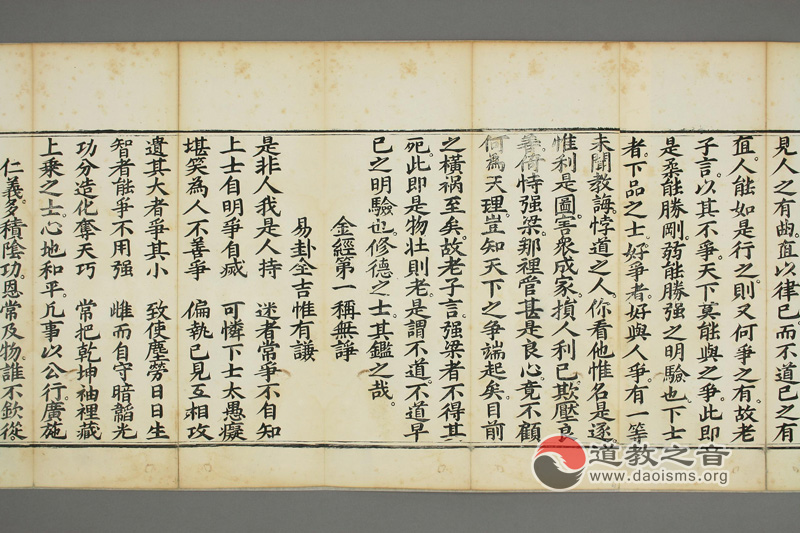 見人之有曲。直以律己而不道己之有
直。人能如是行之。則又何爭之有。故老
子言。以其不爭。天下莫能與之爭。此即
是柔能勝剛。弱能勝强之明驗也。下士
者。下品之士。好爭者。好與人爭。有一等
未聞教誨。悖道之人。你看他惟名是逐。
惟利是圖。害衆成家。損人利己。欺壓良
善。倚恃强梁。那裡管甚是良心。竟不顧
何為天理。豈知天下之爭端起矣。目前
之橫禍至矣。故老子言。强梁者不得其
死。此即是物壯則老。是謂不道。不道早
已之明驗也。修德之士。其鑑之哉。
金經第一稱無諍
易卦全吉惟有謙
是非人我是人持 迷者常爭不自知
上士自明爭自滅 可憐下士太愚癡
堪笑為人不善爭 偏執己見互相攻
遺其大者爭其小 致使塵勞日日生
智者能爭不用强 雌而自守暗韜光
功分造化奪天巧 常把乾坤袖裡藏
上乘之士。心地和平。凢事以公行。廣施
仁義。多積陰功。恩常及物。誰不欽從。
道教之音
www.daoisms.org